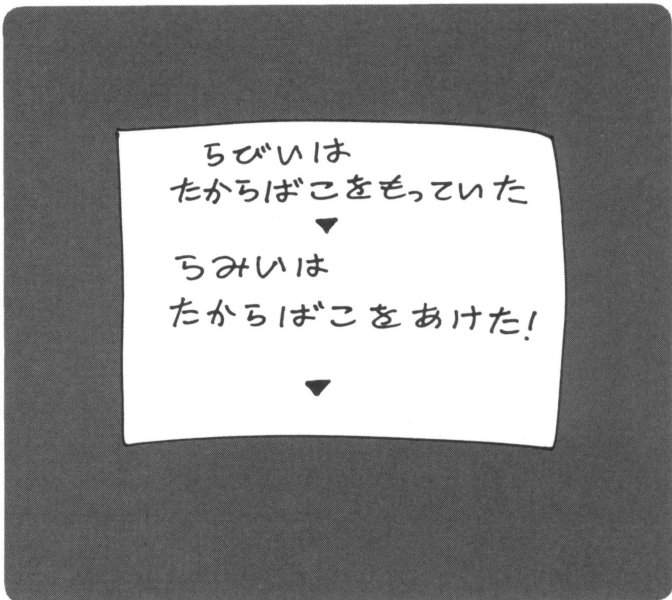 らびいは
たからばこをもっていた
▼
らみいは
たからばこをあけた!
▼